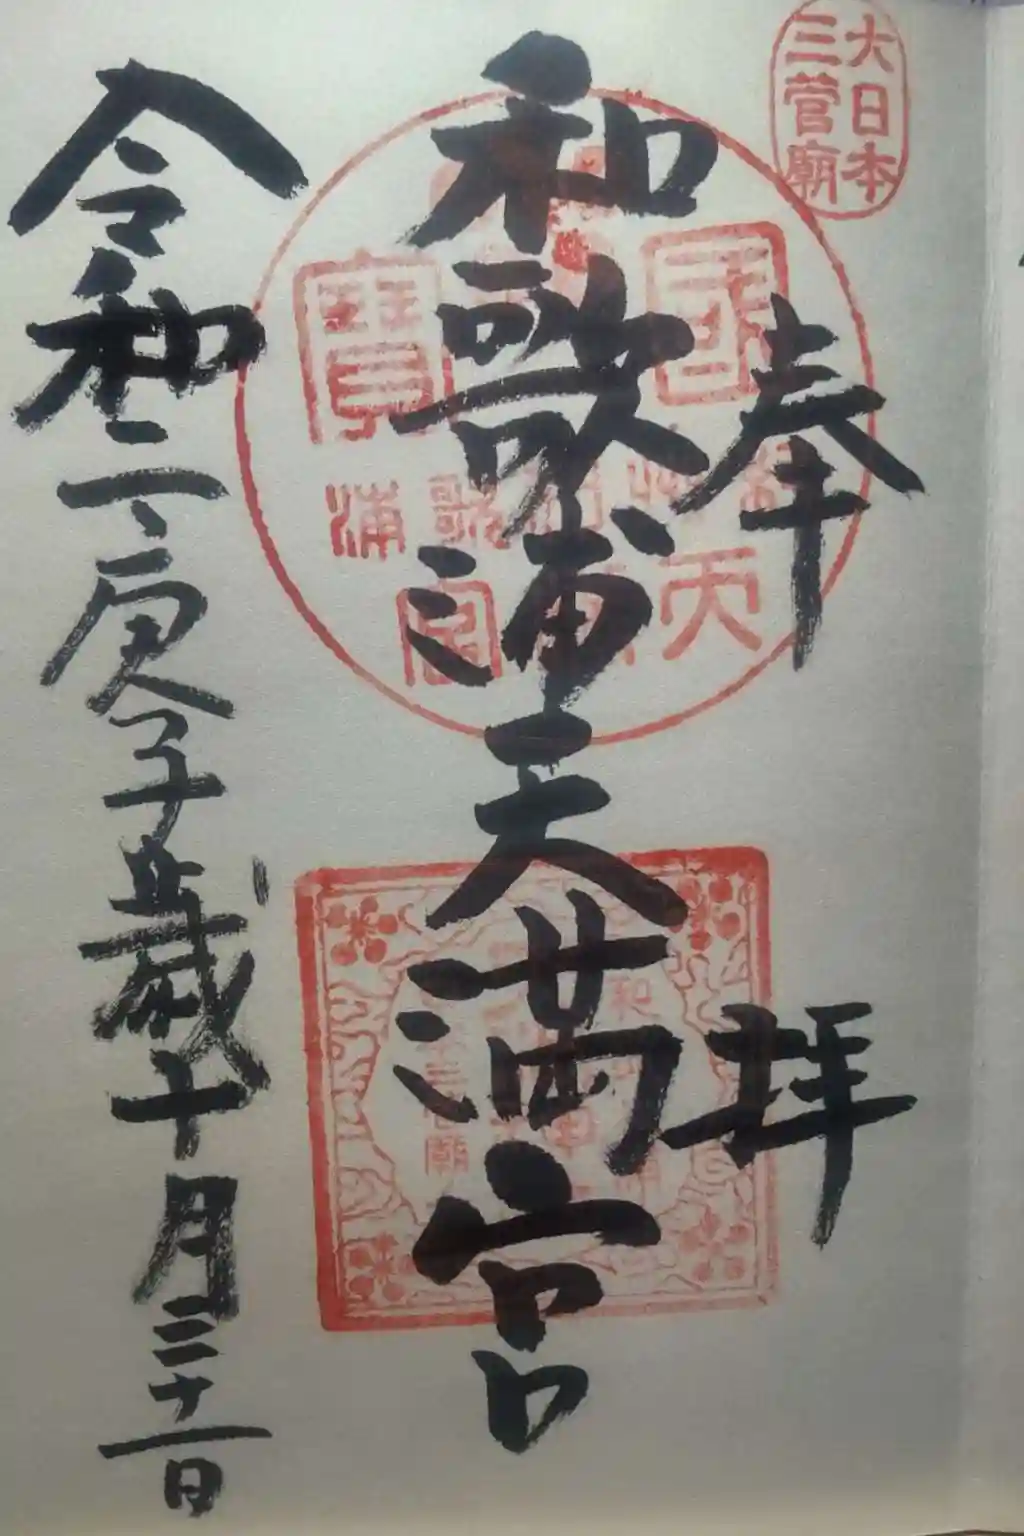 大日本
三菅廟
奉拝
和歌浦天満宮
令和二庚子歳十月三十一日
國
寳
天
歌
浦